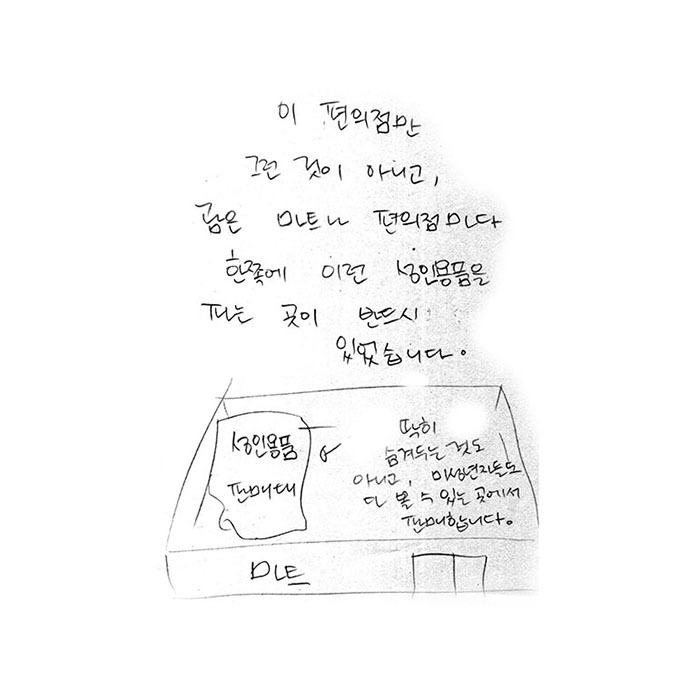 이 편의점만
그런 것이 아니고,
괌은 마트나 편의점마다
한쪽에 이런 성인용품을
파는 곳이 반드시
있었습니다.
성인용품
판매대
딱히
숨겨두는 것도
아니고, 미성년자들도
다 볼 수 있는 곳에서
판매합니다.
마트